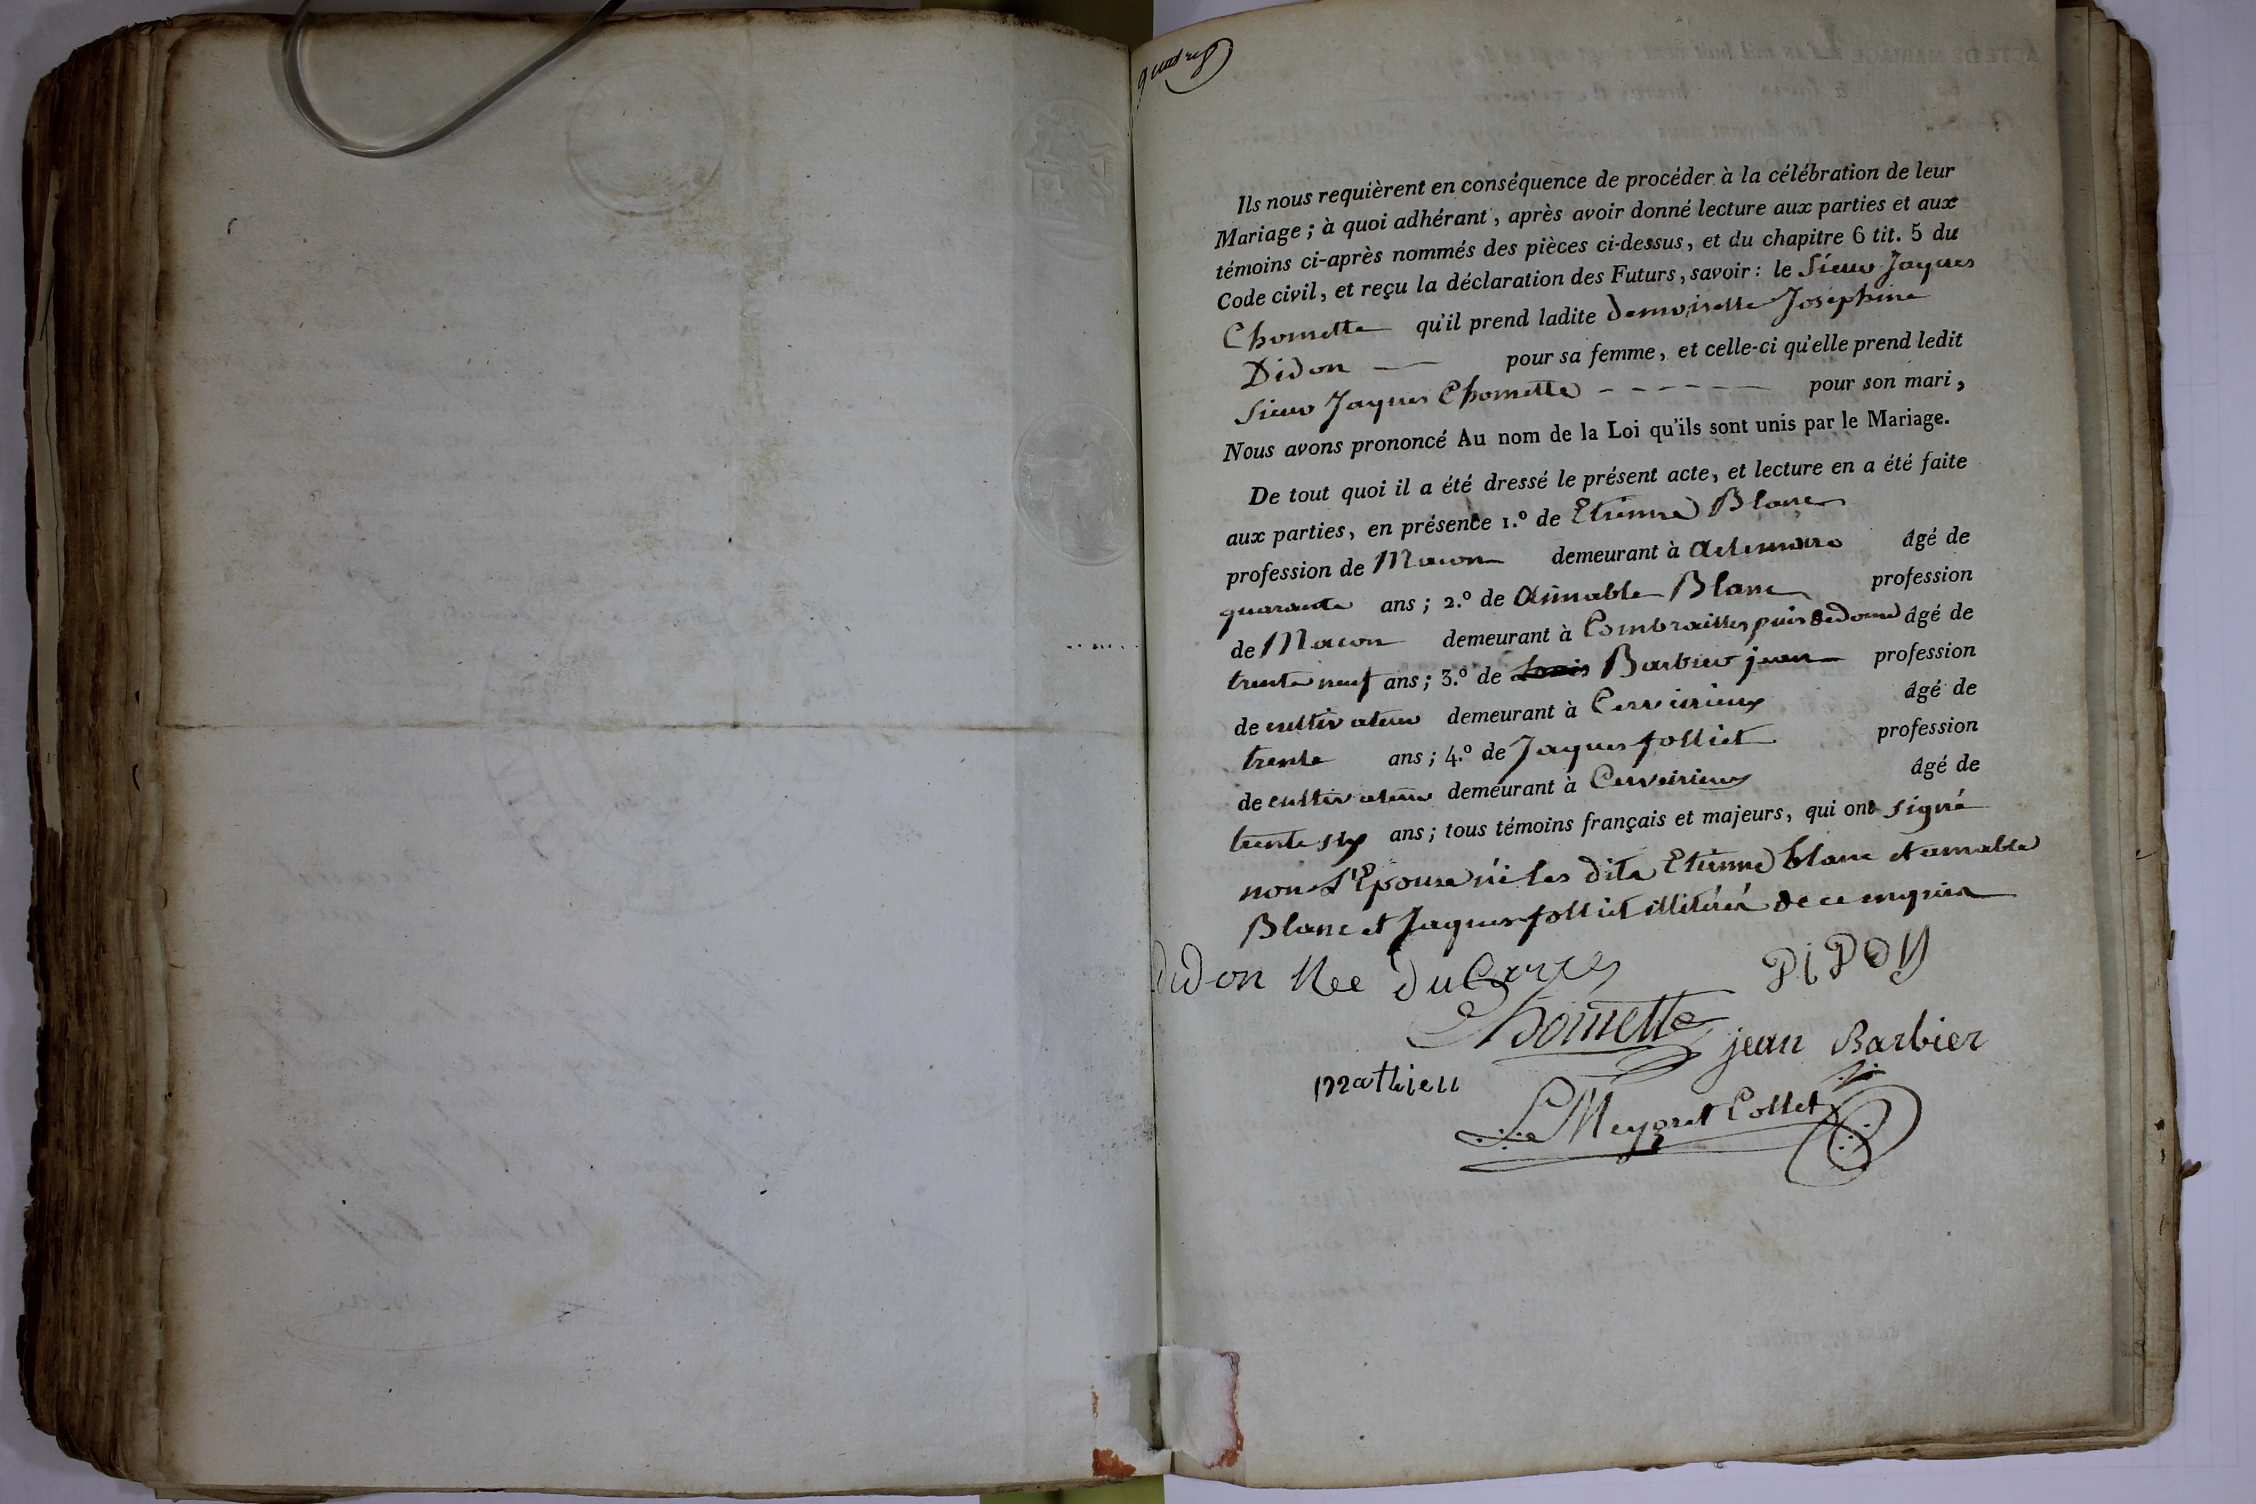 Ils nous requièrent en conséquence de procéder à la célébration de leur
Mariage ; à quoi adhérant, après avoir donné lecture aux parties et aux
témoins ci-après nommés des pièces ci-dessus, et du chapitre 6 tit. 5 du
Code civil, et reçu la déclaration des Futurs, savoir : le Sieur Jaques
Chomette qu'il prend ladite demoiselle Joséphine
Didon — pour sa femme, et celle-ci qu'elle prend ledit
Sieur Jaques Chomette - - - - - - pour son mari,
Nous avons prononcé Au nom de la Loi qu'ils sont unis par le Mariage.
De tout quoi il a été dressé le présent acte, et lecture en a été faite
aux parties, en présence 1.º de Etienne Blanc
profession de Macon demeurant à Artemare âgé de
quarante ans ; 2.º de Aimable Blanc profession
de Macon demeurant à Combrailles puis de dome âgé de
trente neuf ans ; 3.º de Barbier jean profession
de cultivateur demeurant à Cerveirieux âgé de
trente ans ; 4.º de Jaques folliet profession
de cultivateur demeurant à Cerveirieux âgé de
trente six ans ; tous témoins français et majeurs, qui ont signé
non L'Epouse ni les dits Etienne blanc et amable
Blanc et Jaques folliet illitérés de ce enquis
didon Née DIDON
Chomette
jean Barbier
mathieu
Meygret Collet